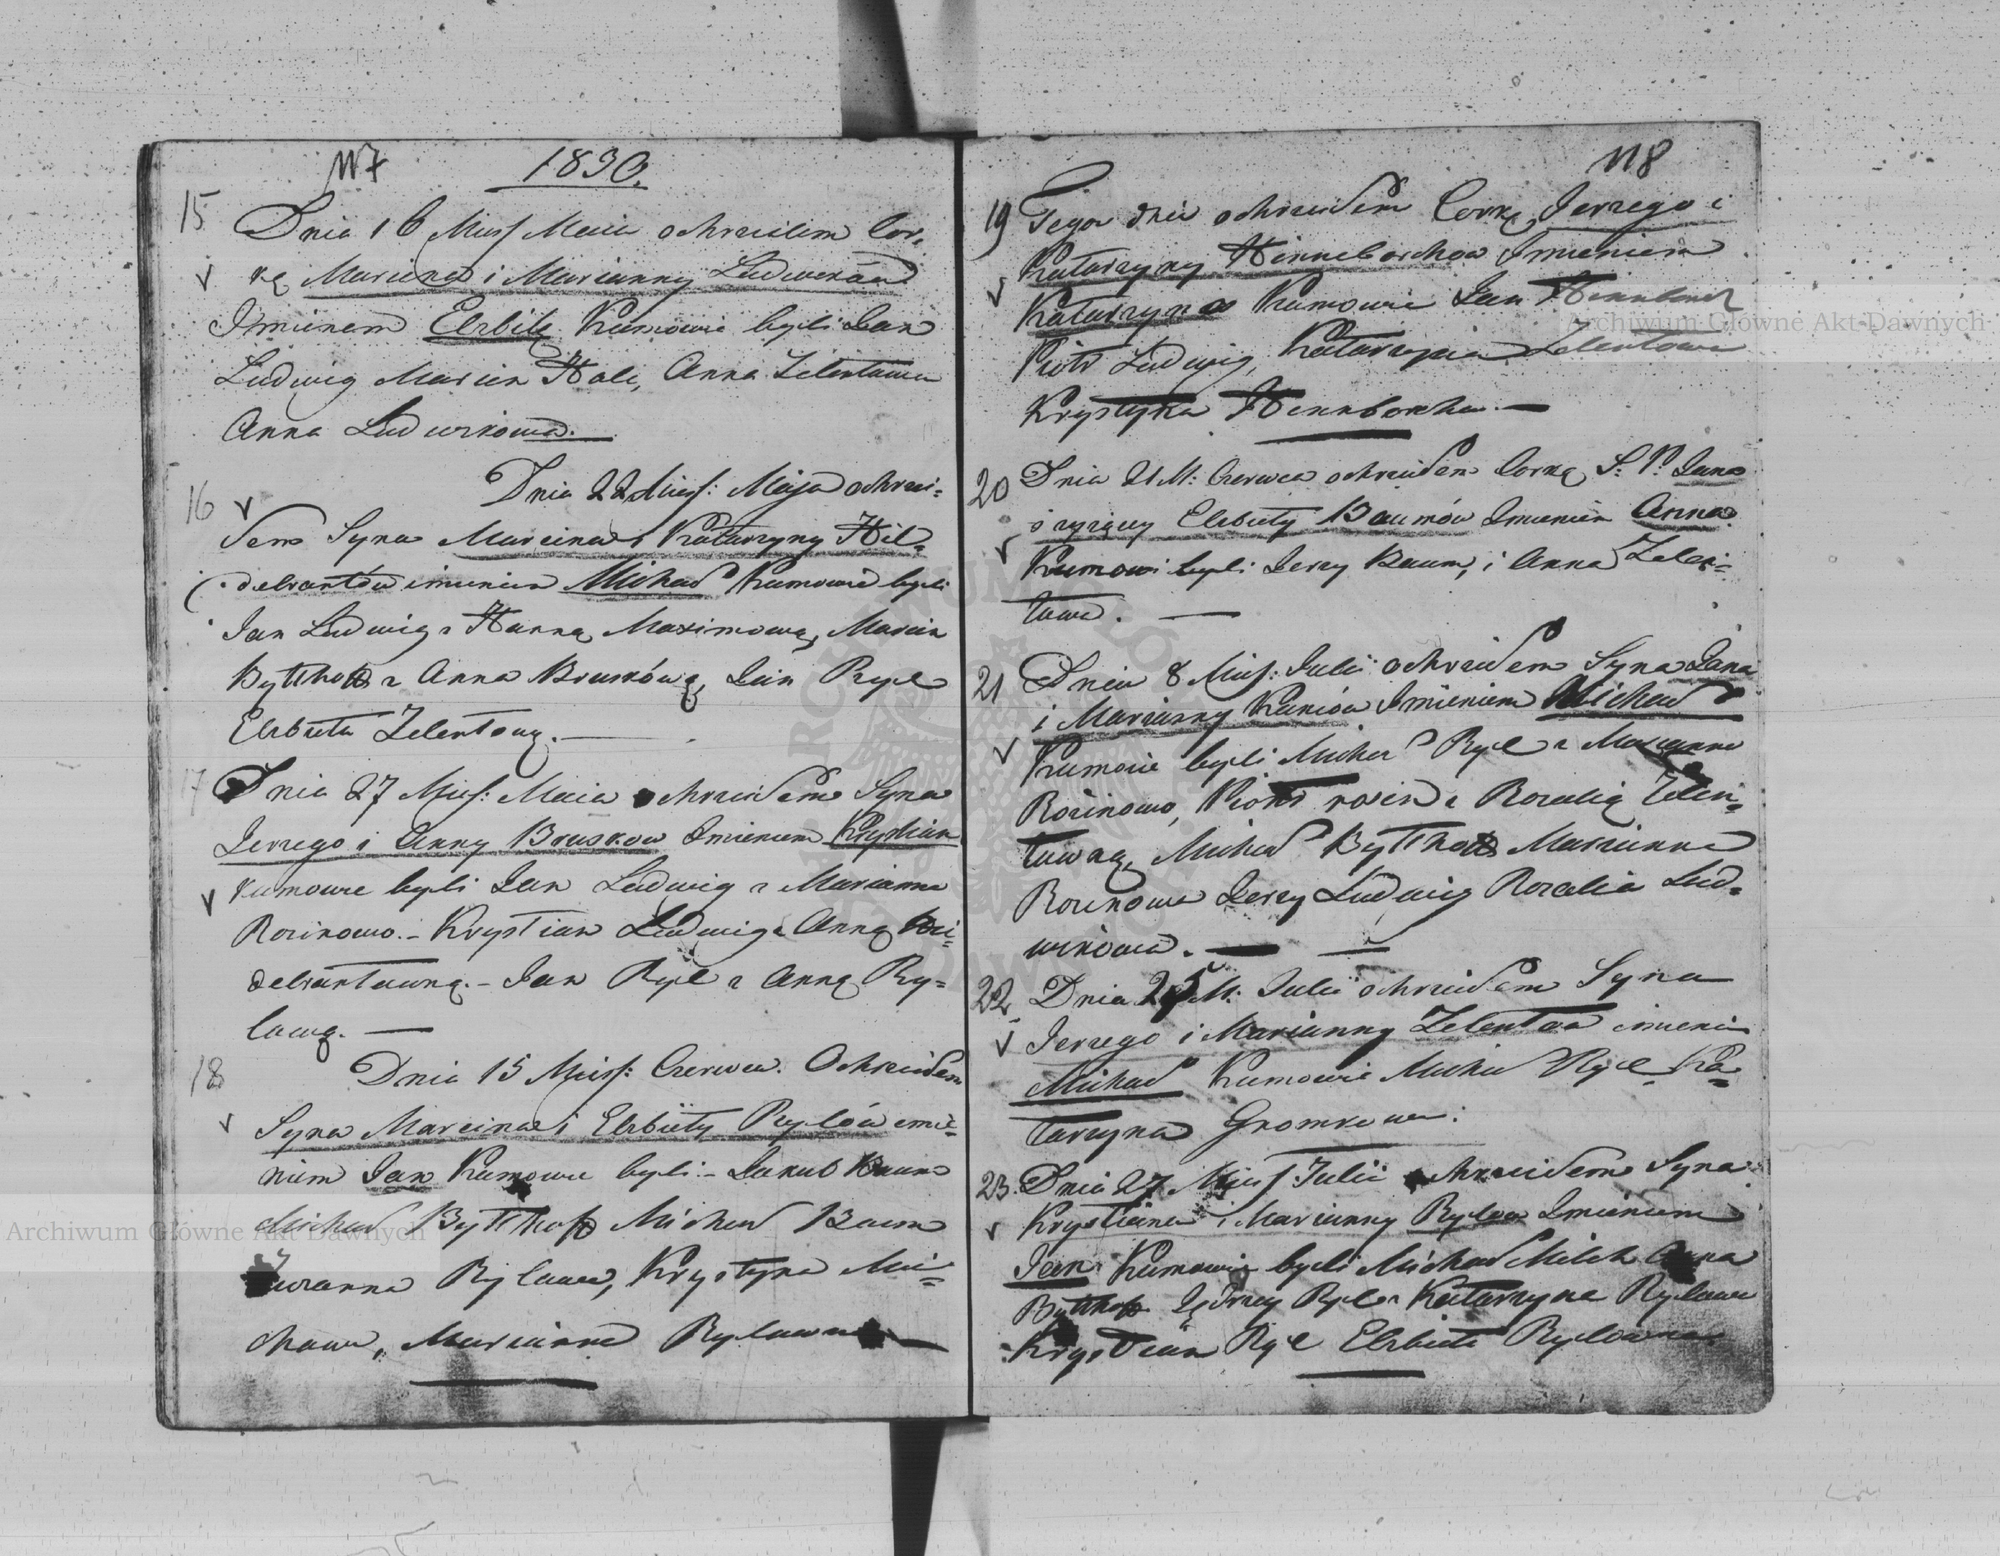 117 1830.
15 Dnia 16 Mies Maia ochrzcilem Cor-
kę Marcina i Marianny Ludwików
Imienem Elzbitę Kumowie byli Jan
Ludwig Marcin Anna Zelentowa
Anna Ludwikowa.
16 Dnia 22 Mies: Maja ochrzci-
łem Syna Marcina i Katarzyny Hil-
debrantów imieniem Michał Kumowie byli
Jan Ludwig z Hanną Maximową, Marcin
Bytthoff z Anna Bruskową, Jan Ryl
Elzbieta Zelentową.
17 Dnia 27 Mies: Maia ochrzciłem Syna
Jerzego i Anny Bruskow Imieniem Krystian
Kumowie byli Jan Ludwig z Marianna
Rozinowo. - Krystian Ludwig z Anną Hil-
debrantowną. - Jan Ryl z Anną Ry-
lową.
18 Dnia 15 Mies: Czerwca. Ochrzciłem
Syna Marcina i Elzbiety Rylów imie-
niem Jan Kumowie byli - Jakub Baum
Michał Bytthoff Michał Baum
Zuzanna Rylowa, Krystyna Mil-
chowa, Marianna Rylowna
118
19 Tego dnia ochrzciłem Corkę Jerzego i
Katarzyny Hinneborchow Imieniem
Katarzyna Kumowie Jan
Piotr Ludwig, Katarzyna Zelentowa
Krystyna Hennborcha.
20 Dnia 21 M: Czerwca ochrzciłem Corkę S: P: Jana
i Elzbiety Baumów Imieniem Anna
Kumowi byli Jerzy Baum, i Anna Zelen-
towa.
21 Dnia 8 Mies: Julii ochrzciłem Syna Jana
i Marianny Imieniem Michał
Kumowie byli Michał Ryl z Marianna
Rozinowo, Piotr z Rozalią Zelen-
towną, Michał Bytthoff Marianna
Rozinowa Jerzy Ludwig Rozalia Lud-
wikowa.
22 Dnia 25 M: Julii ochrzciłem Syna
Jerzego i Marianny Zelentow imieni
Michał Kumowie Michał Ryl, Ka-
tarzyna Gromkowa.
23. Dnia 27 Mies: Julii ochrzciłem Syna
Krystiana i Marianny Rylow Imieniem
Jan Kumowie byli Michał Milch Anna
Bytthoff Jędrzey Ryl z Katarzyna Rylowa
Krystian Ryl Elzbieta Rylowna
Archiwum Główne Akt Dawnych
Archiwum Główne Akt Dawnych